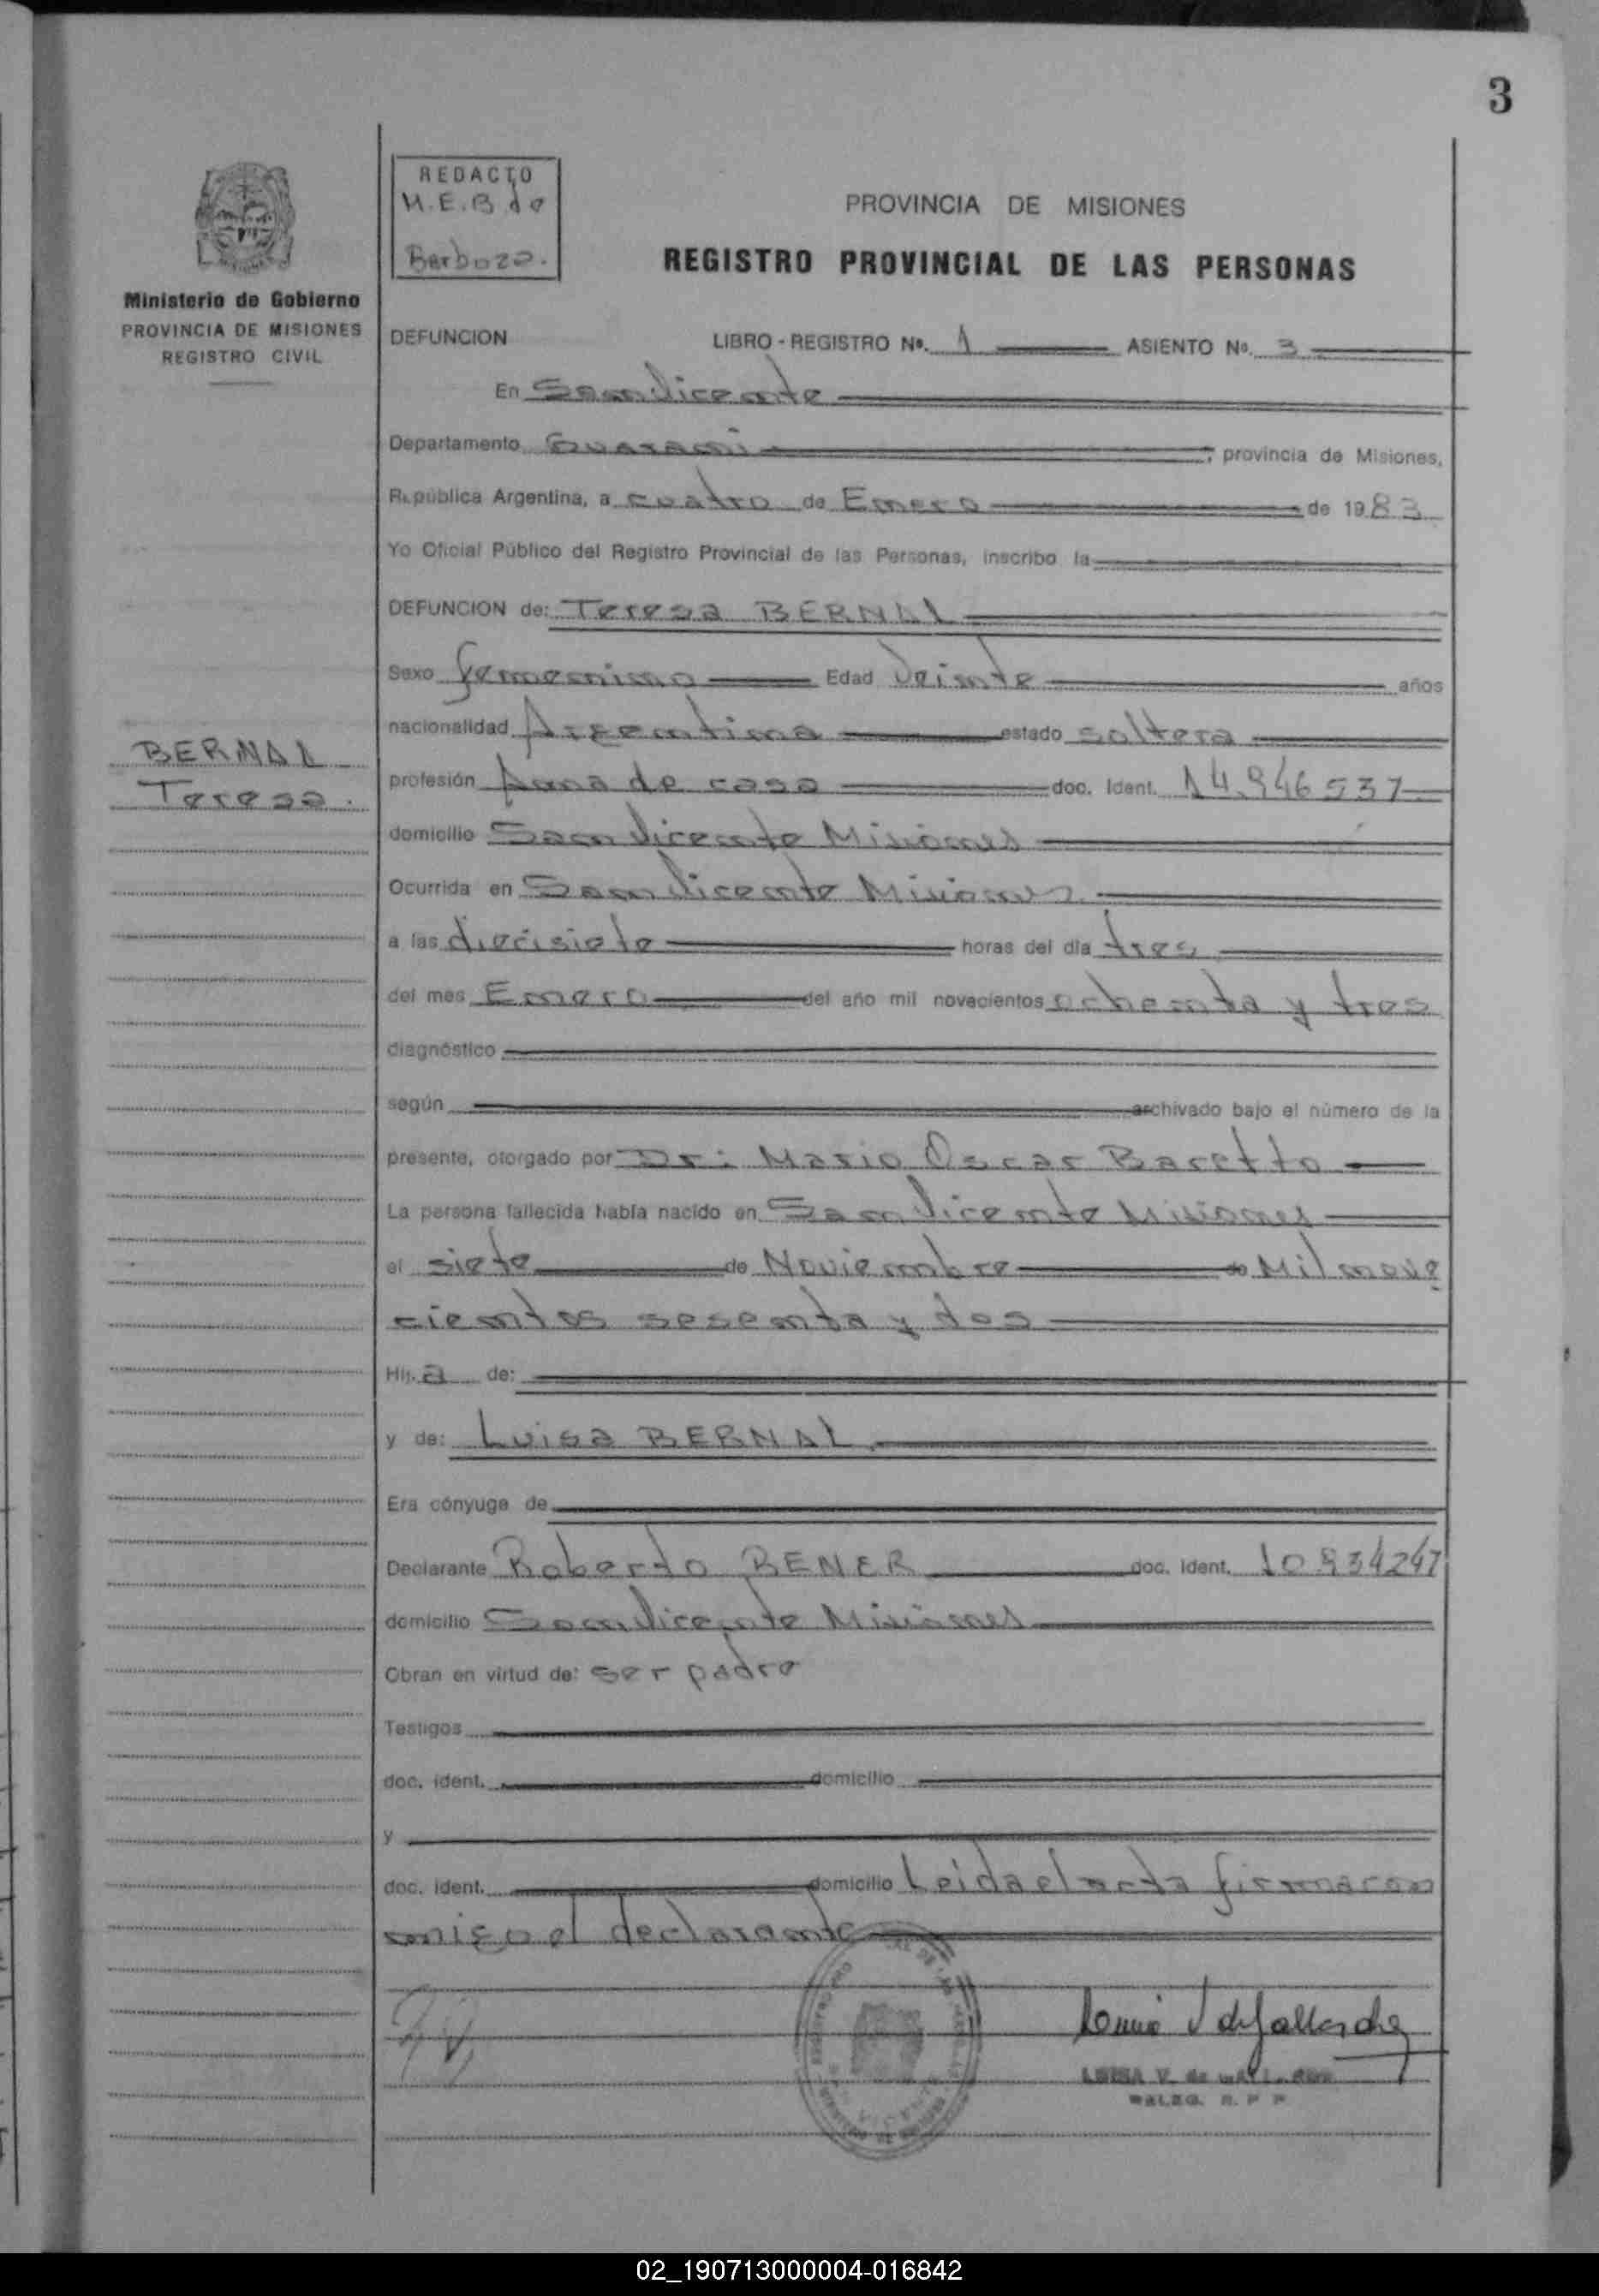 3
REDACTO
M.E.B de
Barbozo.
PROVINCIA DE MISIONES
REGISTRO PROVINCIAL DE LAS PERSONAS
Ministerio de Gobierno
PROVINCIA DE MISIONES
REGISTRO CIVIL
DEFUNCION LIBRO - REGISTRO Nº. 1 ASIENTO Nº. 3
En San Vicente
Departamento Guarani ; provincia de Misiones,
República Argentina, a cuatro de Enero de 1983
Yo Oficial Público del Registro Provincial de las Personas, inscribo la
DEFUNCION de: Teresa BERNAL
Sexo femenino Edad Veinte años
nacionalidad Argentina estado soltera
BERNAL
Teresa.
profesión Ama de casa doc. Ident. 14.946537
domicilio San Vicente Misiones
Ocurrida en San Vicente Misiones.
a las diecisiete horas del día tres
del mes Enero del año mil novecientos ochenta y tres
diagnóstico
según archivado bajo el número de la
presente, otorgado por Dr: Mario Oscar Baretto
La persona fallecida había nacido en San Vicente Misiones
el siete de Noviembre de Mil nove
cientos sesenta y dos
Hij. a de:
y de: Luisa BERNAL
Era cónyuge de
Declarante Roberto BENER doc. Ident. 10.934247
domicilio San Vicente Misiones
Obran en virtud de: ser padre
Testigos
doc. ident. domicilio
y
doc. ident. domicilio Leida el acta firmacon
migo el declarante
02_190713000004-016842